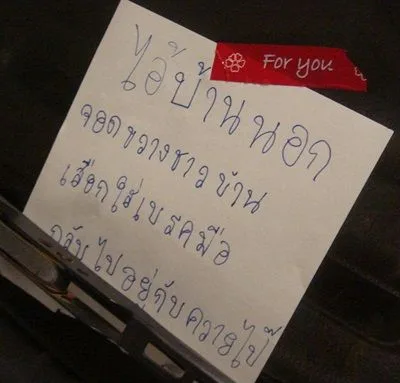 For you
ไอ้บ้านนอก
จอดขวางชาวบ้าน
เสือกใส่เบรคมือ
กลับไปอยู่กับควายไป๊